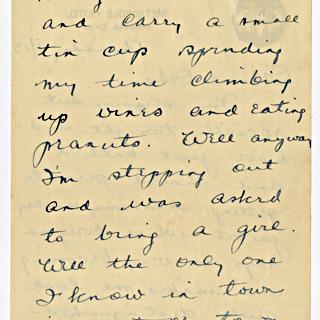 and carry a small
tin cup spending
my time climbing
up vines and eating
peanuts. Well anyway
I'm stepping out
and was asked
to bring a girl.
Well the only one
I know in town